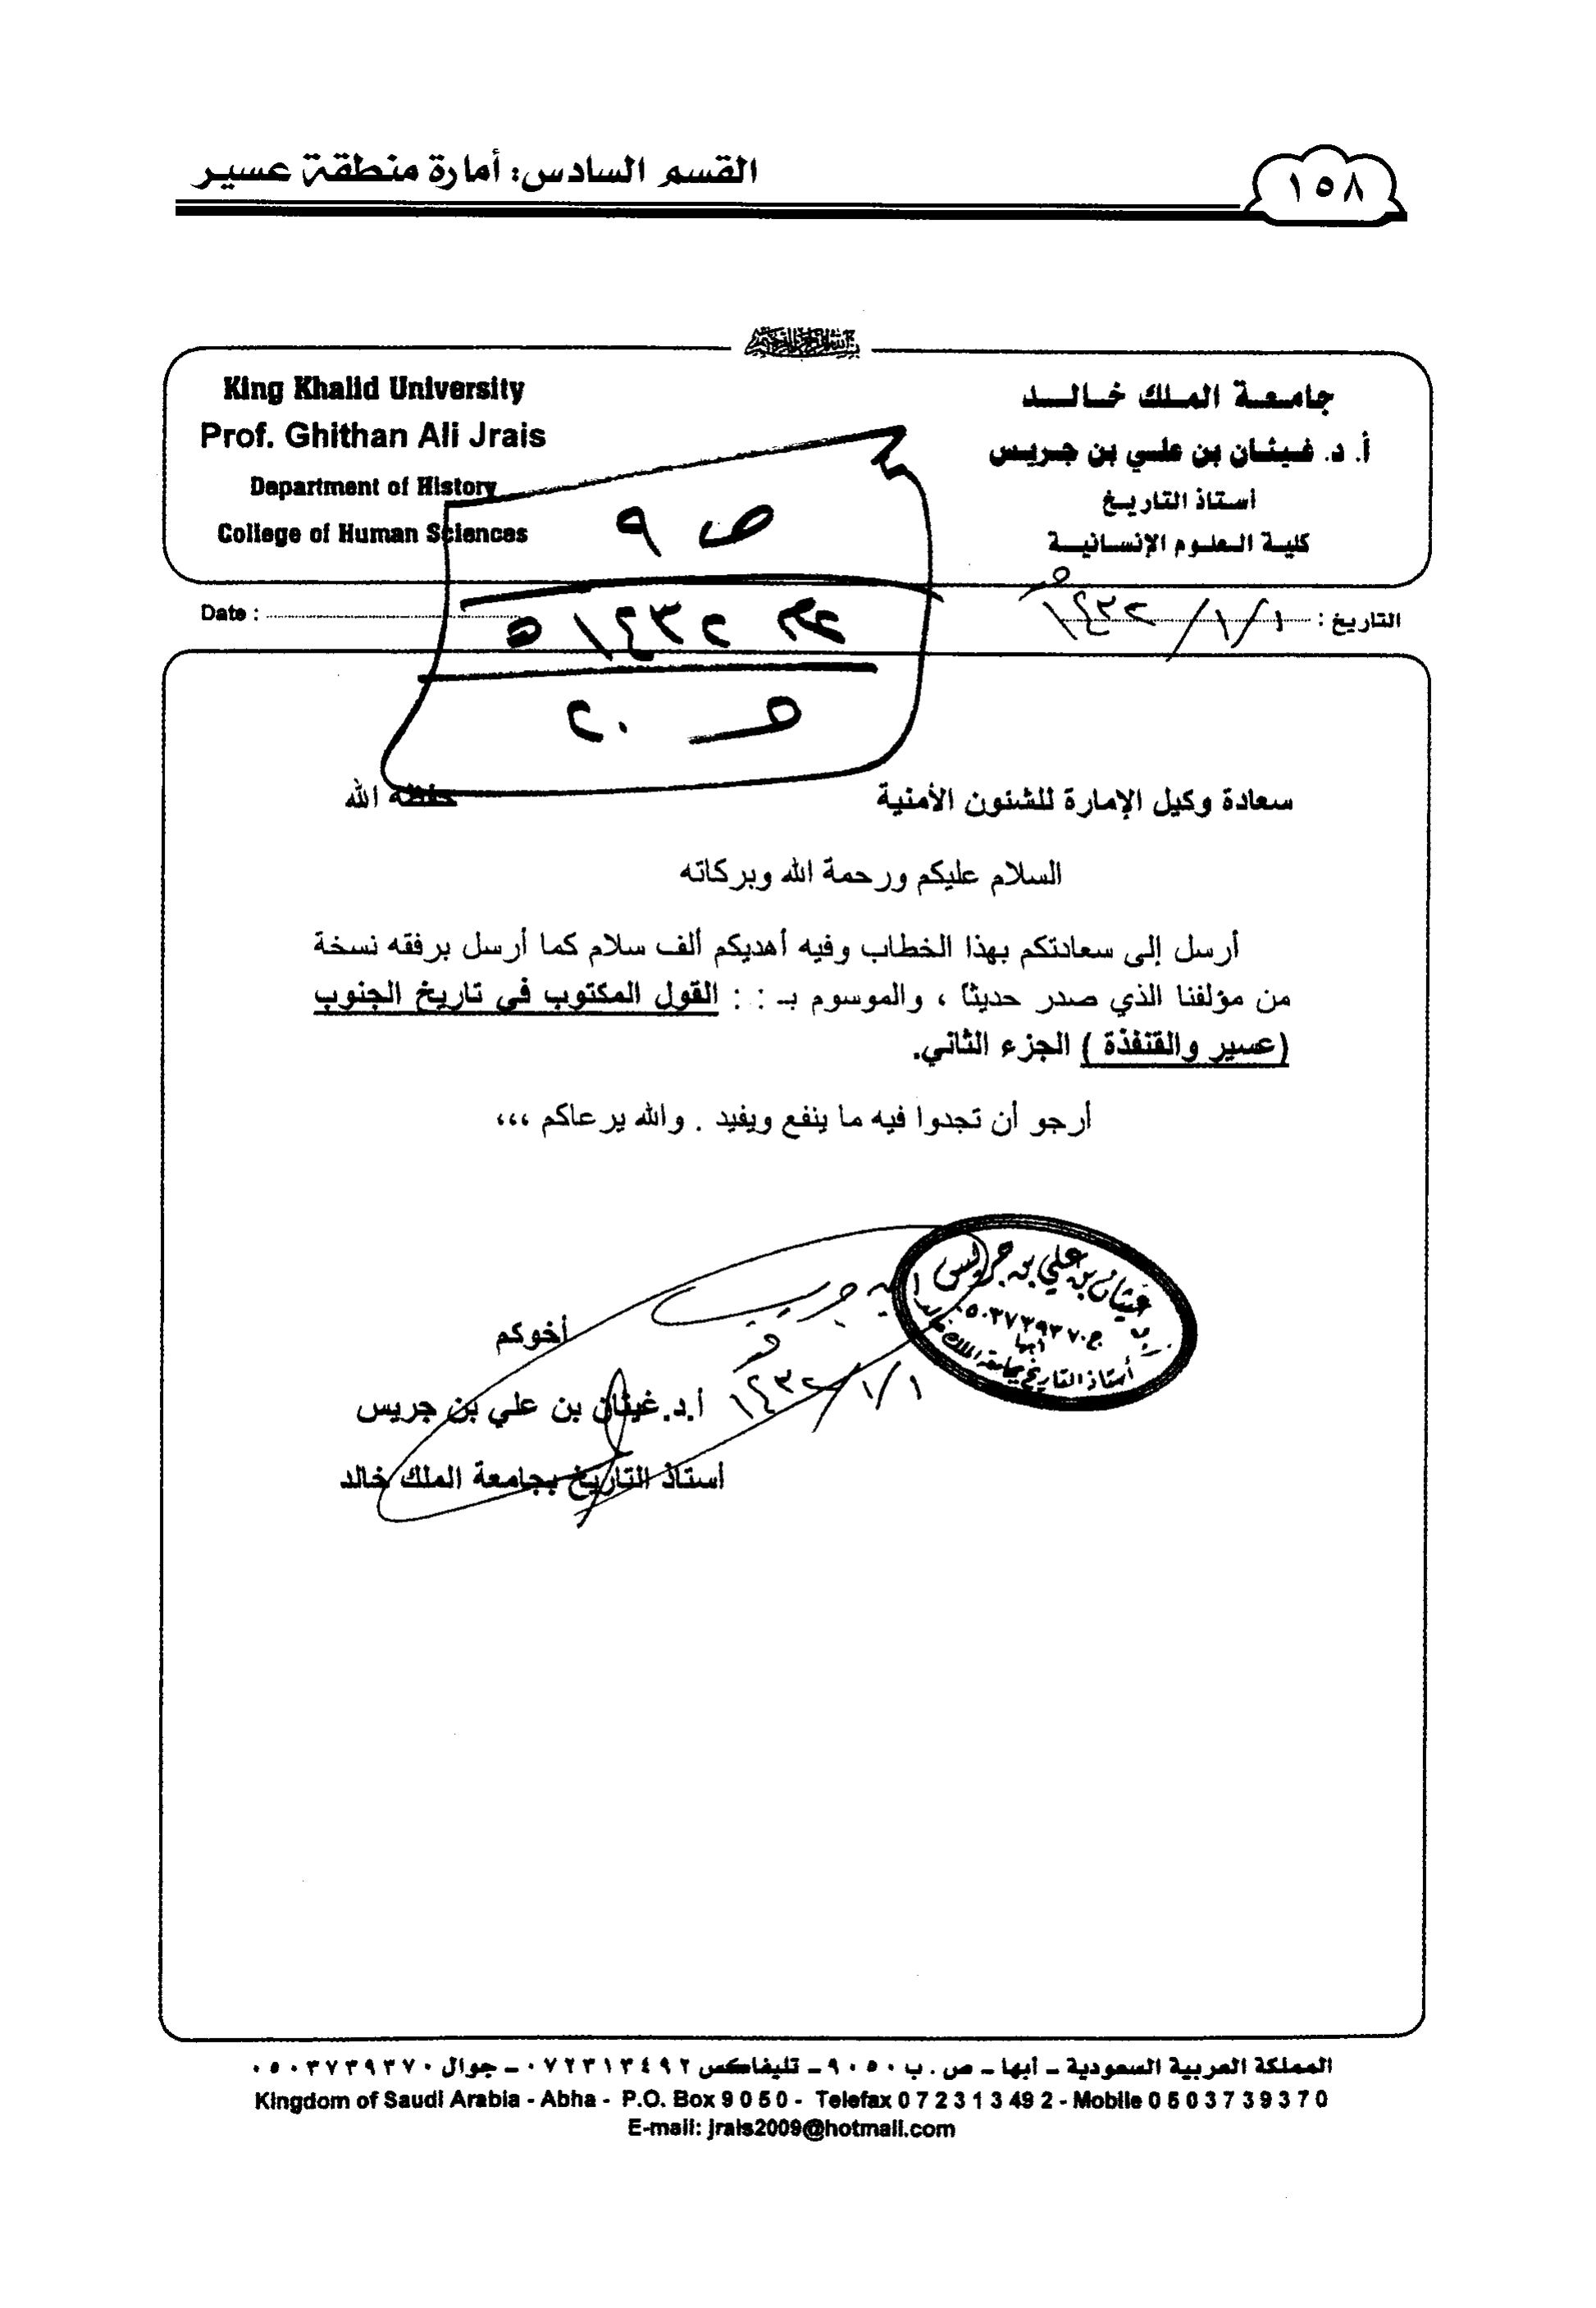 القسم السادس: أمارة منطقة عسير
١٥٨
King Khalid University
Prof. Ghithan Ali Jrais
Department of History
College of Human Sciences
جامعة الملك خالد
أ. د. غيثان بن علي بن جريس
أستاذ التاريخ
كلية العلوم الإنسانية
Date :
التاريخ : ١/١/١٤٣٢هـ
ص ٩
سعادة وكيل الإمارة للشئون الأمنية حفظه الله
السلام عليكم ورحمة الله وبركاته
أرسل إلى سعادتكم بهذا الخطاب وفيه أهديكم ألف سلام كما أرسل برفقه نسخة
من مؤلفنا الذي صدر حديثاً ، والموسوم بـ : : القول المكتوب في تاريخ الجنوب
(عسير والقنفذة ) الجزء الثاني.
أرجو أن تجدوا فيه ما ينفع ويفيد . والله يرعاكم ،،،
غيثان بن علي بن جريس
ج.٠٥٠٣٧٣٩٣٧٠
أبها
أستاذ التاريخ بجامعة الملك خالد
أخوكم
١/١/١٤٣٢هـ
أ.د.غيثان بن علي بن جريس
أستاذ التاريخ بجامعة الملك خالد
المملكة العربية السعودية - أبها - ص . ب ٩٠٥٠ - تليفاكس ٠٧٢٣١٣٤٩٢ - جوال ٠٥٠٣٧٣٩٣٧٠
Kingdom of Saudi Arabia - Abha - P.O. Box 9 0 5 0 - Telefax 0 7 2 3 1 3 49 2 - Mobile 0 5 0 3 7 3 9 3 7 0
E-mail: jrais2009@hotmail.com